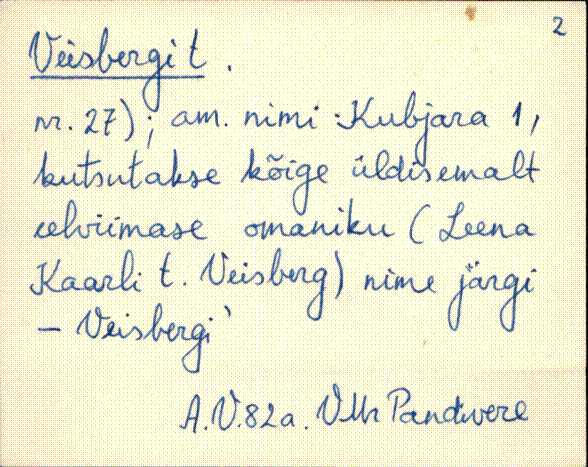 2
Veisbergi t.
nr. 27); am. nimi Kubjara 1,
kutsutakse kõige üldisemalt
eelviimase omaniku (Leena
Kaarli t. Veisberg) nime järgi
– Veisbergi`
A.V.82a. VMr Pandivere